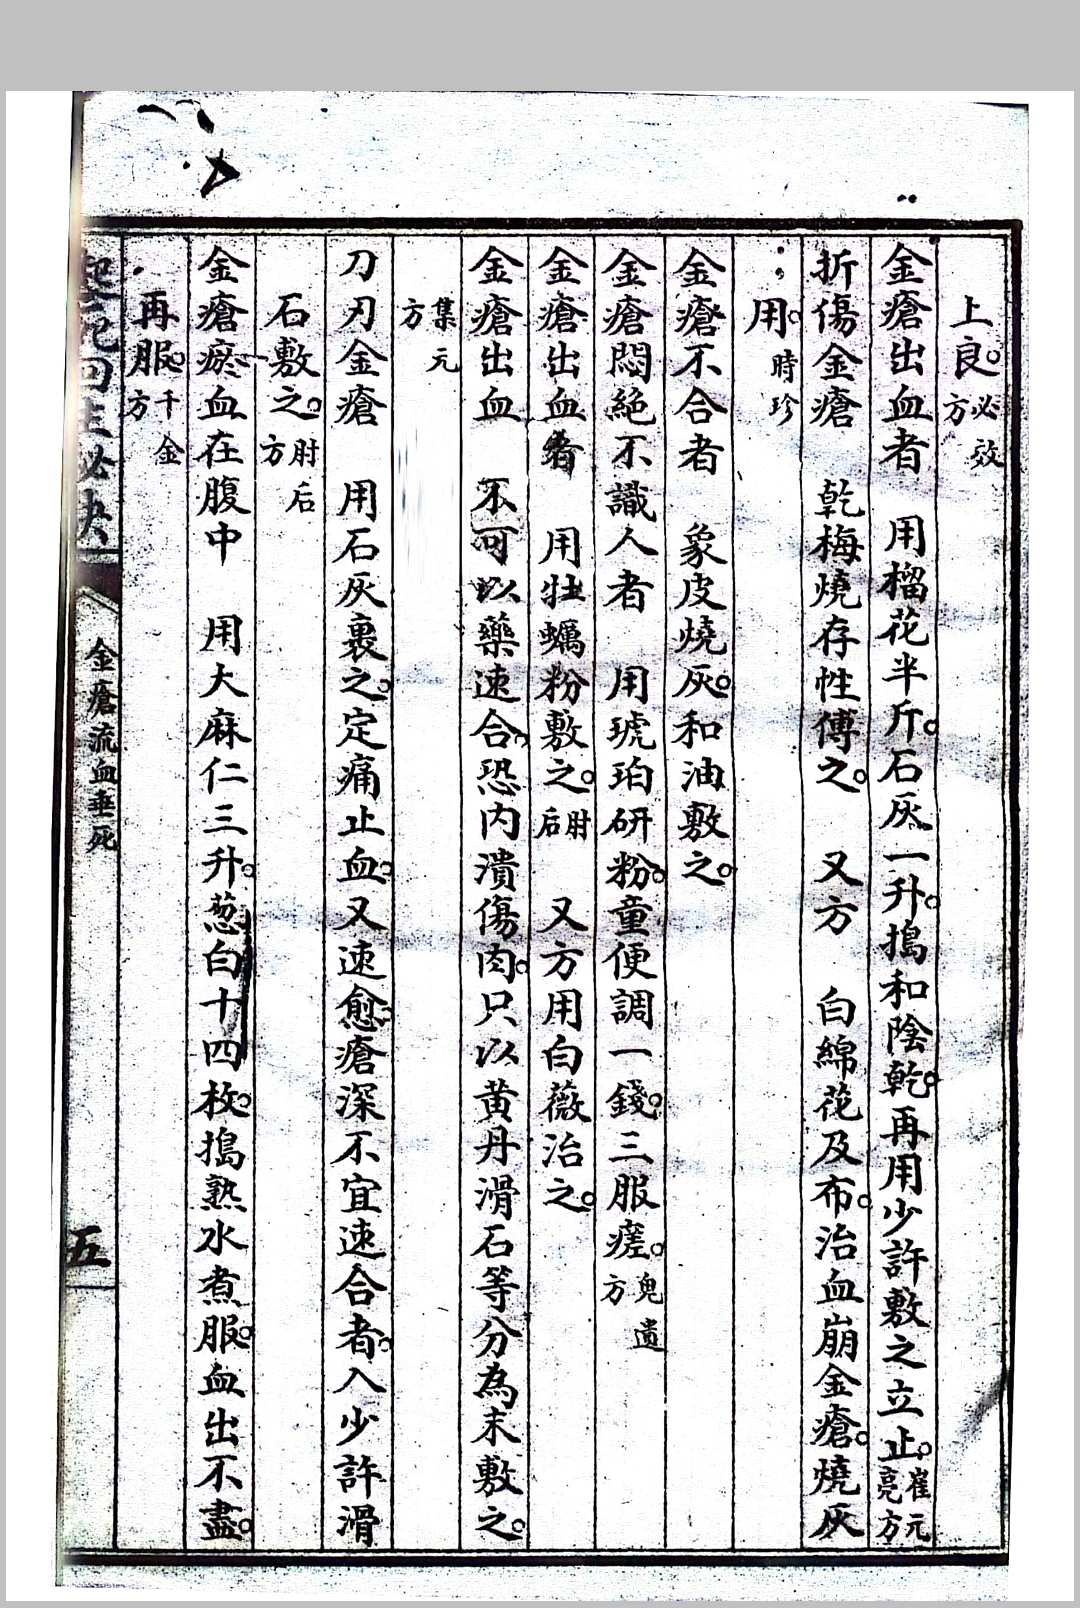 上良。必效方
金瘡出血者　用榴花半斤。石灰一升。搗和陰乾。再用少許敷之立止。崔元亮方
折傷金瘡　乾梅燒存性傅之。　又方　白綿花及布。治血崩金瘡。燒灰
用。時珍
金瘡不合者　象皮燒灰。和油敷之。
金瘡悶絕不識人者　用琥珀研粉。童便調一錢。三服瘥。鬼遺方
金瘡出血者　用牡蠣粉敷之。肘后　又方用白薇治之。
金瘡出血　不可以藥速合。恐內潰傷肉。只以黄丹滑石等分為末敷之。
集元方
刀刃金瘡　用石灰裹之。定痛止血。又速愈。瘡深不宜速合者。入少許滑
石敷之。肘后方
金瘡瘀血在腹中　用大麻仁三升。葱白十四枚。搗熟水煮服。血出不盡。
再服。千金方
起死回生秘訣
金瘡流血垂死
五